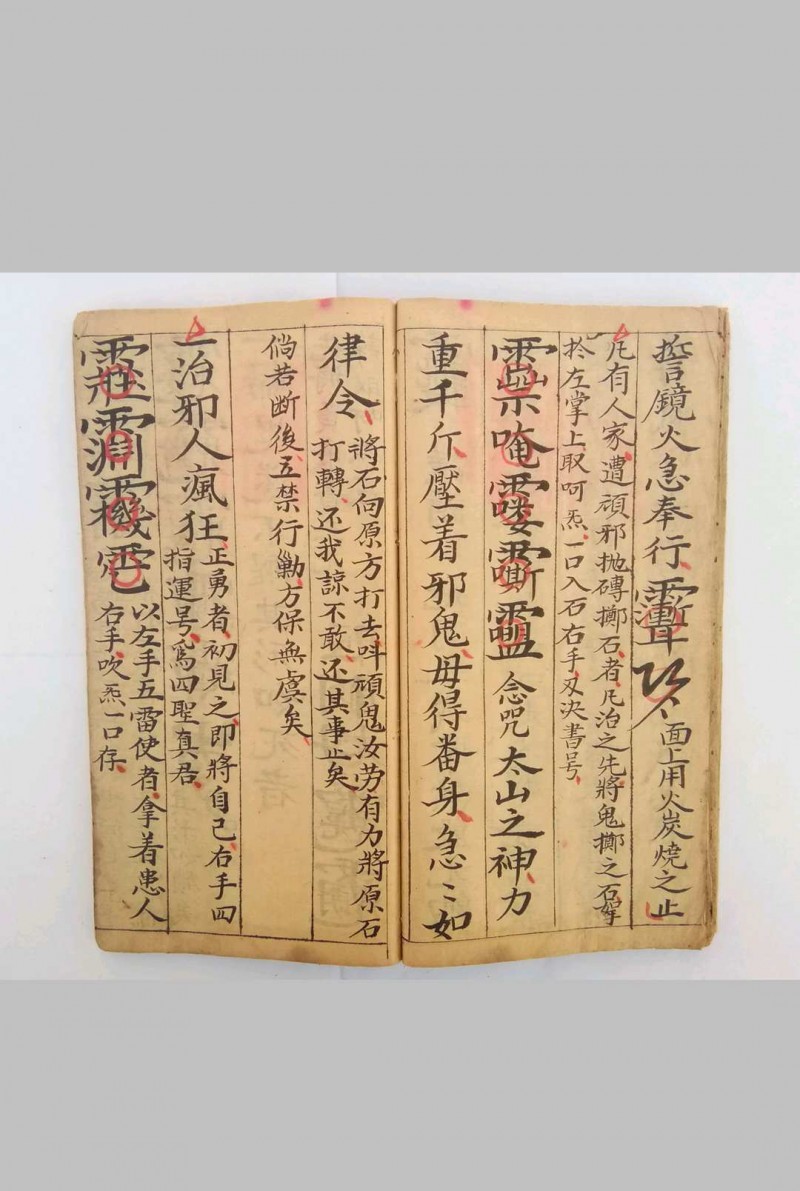 誓鏡火急奉行 面上用火炭燒之止
凡有人家遭頑邪抛磚擲石者凡治之先將鬼擲之石拏
扵左掌上取呵炁一口入石右手刄决書号
唵 念咒太山之神力
重千斤壓着邪鬼毋得番身急〻如
律令將石向原方打去呌頑鬼汝劳有力將原石
打轉还我諒不敢还其事止矣
倘若断後五禁行勦方保無虞矣
一治邪人瘋狂正勇者初見之即將自己右手四
指運号寫四聖真君
以左手五雷使者拿着患人
右手吹炁一口存